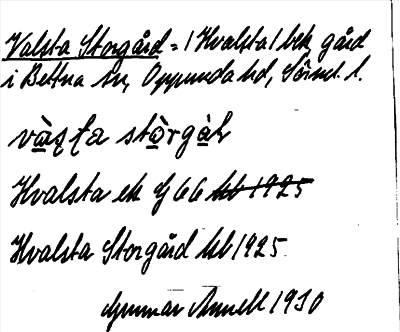 Valsta Storgård = (Hvalsta) bek gård
i Bettna sn, Oppunda hd, Sörml. l.
vàṣṭa stòrgàḷ
Hvalsta ek G 66 kb 1925
Hvalsta Storgård kb 1925
Gunnar Annell 1930